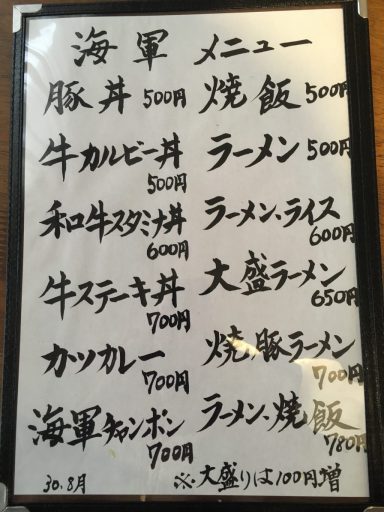 海軍 メニュー
豚丼 500円 焼飯 500円
牛カルビー丼 500円 ラーメン 500円
和牛スタミナ丼 600円 ラーメン、ライス 600円
牛ステーキ丼 700円 大盛ラーメン 650円
カツカレー 700円 焼豚ラーメン 700円
海軍チャンポン 700円 ラーメン、焼飯 780円
30.8月 ※大盛りは100円増